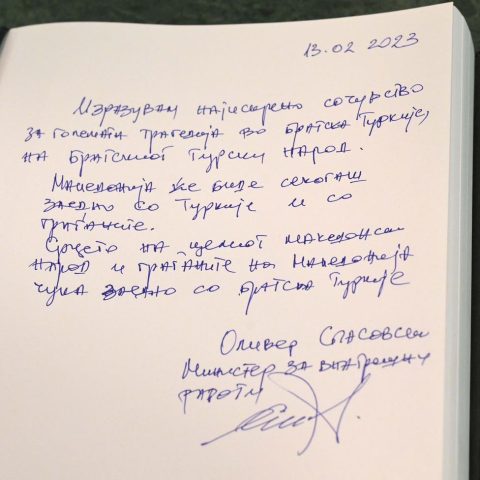 13.02 2023
Изразувам најискрено сочувство
за големата трагедија во братска Туркије,
на братскиот Турски народ.
Македонија ќе биде секогаш
заедно со Туркије и со
граѓаните.
Срцето на целиот македонски
народ и граѓаните на Македонија
чука заедно со братска Туркије
Оливер Спасовски
Министер за внатрешни
работи